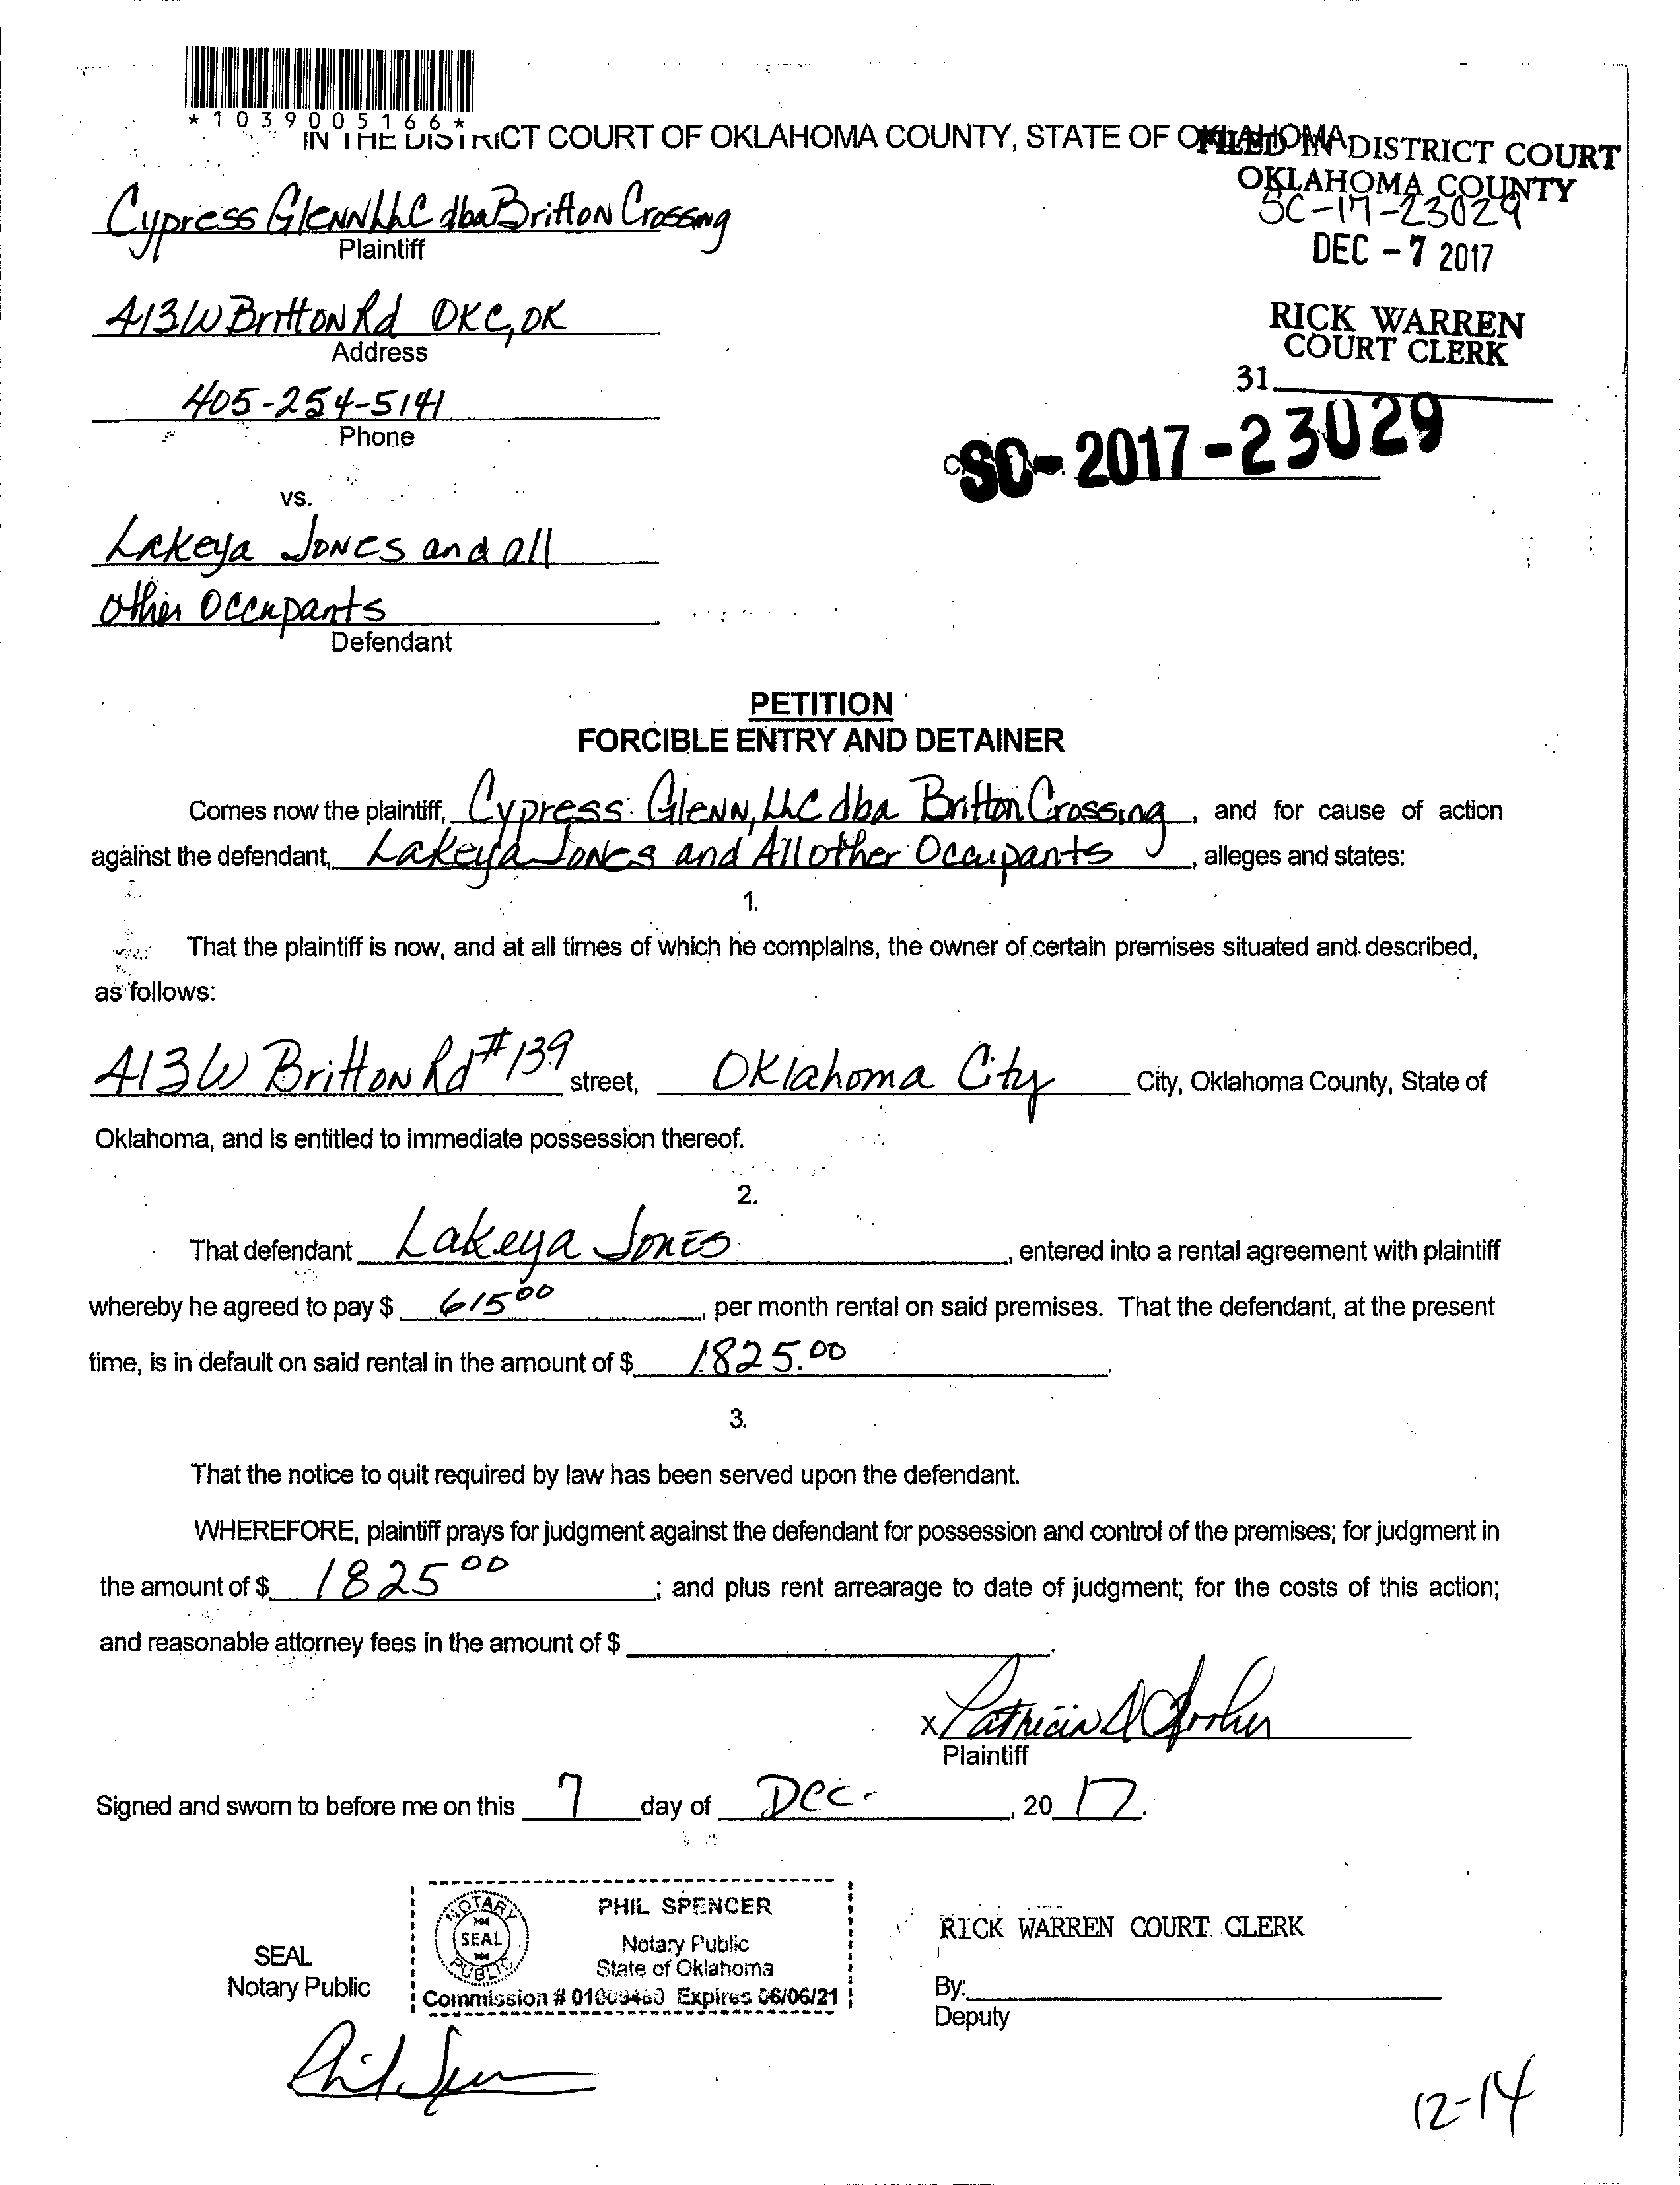 *1039005166*
IN THE DISTRICT COURT OF OKLAHOMA COUNTY, STATE OF OKLAHOMA
FILED IN DISTRICT COURT
OKLAHOMA COUNTY
SC-17-23029
DEC - 7 2017
RICK WARREN
COURT CLERK
31
SC- 2017-23029
Cypress Glenn LLC dba Britton Crossing
Plaintiff
413 W Britton Rd OKC, OK
Address
405-254-5141
Phone
vs.
Lakeya Jones and all
other Occupants
Defendant
PETITION
FORCIBLE ENTRY AND DETAINER
Comes now the plaintiff, Cypress Glenn, LLC dba Britton Crossing, and for cause of action
against the defendant, Lakeya Jones and All other Occupants, alleges and states:
1.
That the plaintiff is now, and at all times of which he complains, the owner of certain premises situated and described,
as follows:
413 W Britton Rd #139 street, Oklahoma City City, Oklahoma County, State of
Oklahoma, and is entitled to immediate possession thereof.
2.
That defendant Lakeya Jones, entered into a rental agreement with plaintiff
whereby he agreed to pay $ 615 00, per month rental on said premises. That the defendant, at the present
time, is in default on said rental in the amount of $ 1825.00.
3.
That the notice to quit required by law has been served upon the defendant.
WHEREFORE, plaintiff prays for judgment against the defendant for possession and control of the premises; for judgment in
the amount of $ 1825 00; and plus rent arrearage to date of judgment; for the costs of this action;
and reasonable attorney fees in the amount of $ .
x Patricia D
Plaintiff
Signed and sworn to before me on this 7 day of Dec., 20 17.
SEAL
Notary Public
NOTARY
SEAL
PUBLIC
PHIL SPENCER
Notary Public
State of Oklahoma
Commission # 01009460 Expires 06/06/21
RICK WARREN COURT CLERK
By:
Deputy
Phil Spencer
12-14